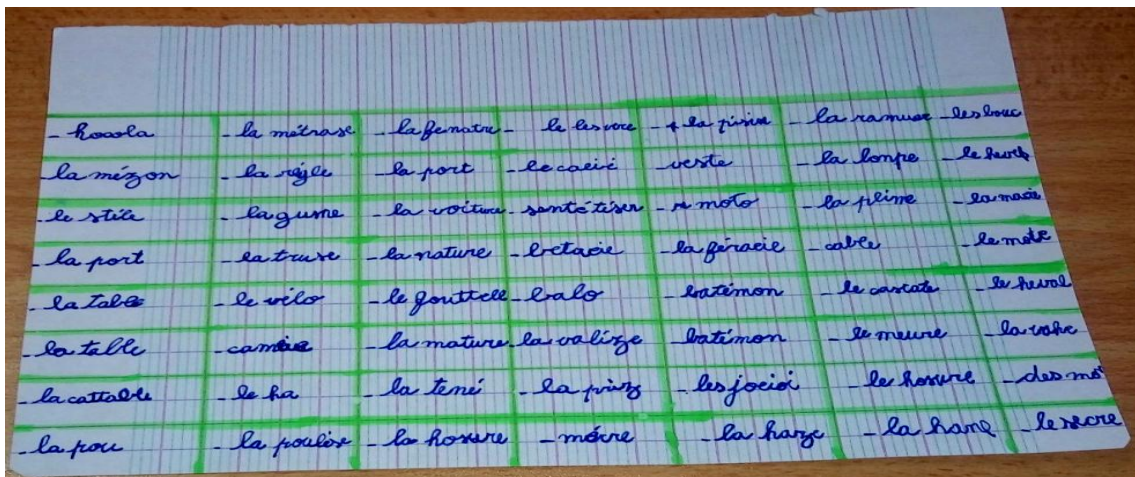 - hocola - la métrase - la fenatre - le les vore - la pisin - la ramuse - les bouc
- la mézon - la régle - la port - le caeié veste - la lompe - le heveb
- le stile - la gume - la voiture - santétiser - moto - la plime - la macie
- la port - la truse - la nature - bretacie - la féracie - cable - le mote
- la table - le vélo - le gouttell - balo batimon - le cascate - le heval
- la table - camaie - la mature - la valize batimon - le meure - la vahe
- la cattable - le ha la tené - la priz - les joeioi - le hosure - des mo
- la pou - la poulose - la hosure - mécre - la haze - la hane - le secre